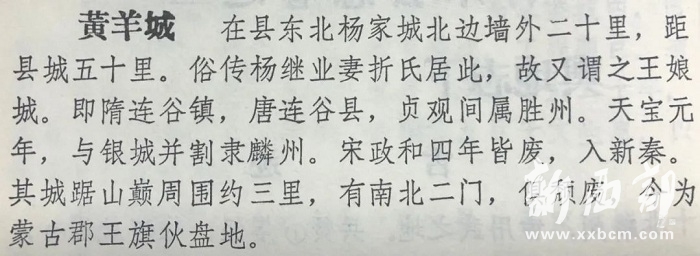 黄羊城　在县东北杨家城北边墙外二十里，距
县城五十里。俗传杨继业妻折氏居此，故又谓之王娘
城。即隋连谷镇，唐连谷县，贞观间属胜州。天宝元
年，与银城并割隶麟州。宋政和四年皆废，入新秦。
其城踞山巅周围约三里，有南北二门，俱颓废，今为
蒙古郡王旗伙盘地。
新西部
www.xxbcm.com